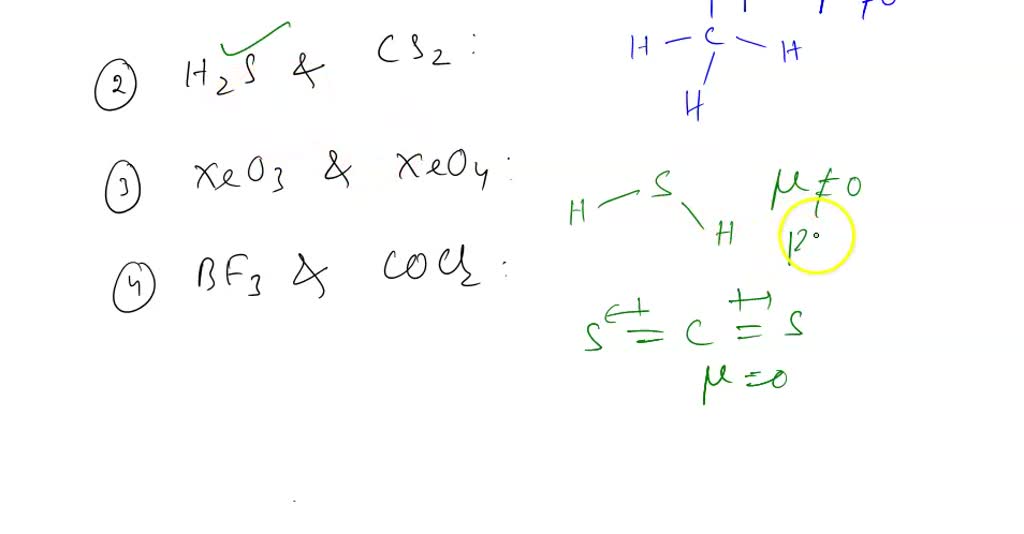 ② H₂S & CS₂ :
③ XeO₃ & XeO₄ :
④ BF₃ & COCl₂ :
H — C — H
H
H — S
H
μ ≠ 0
S = C = S
μ = 0